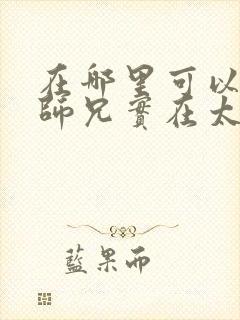 在哪里可以
師兄實在太
藍果而